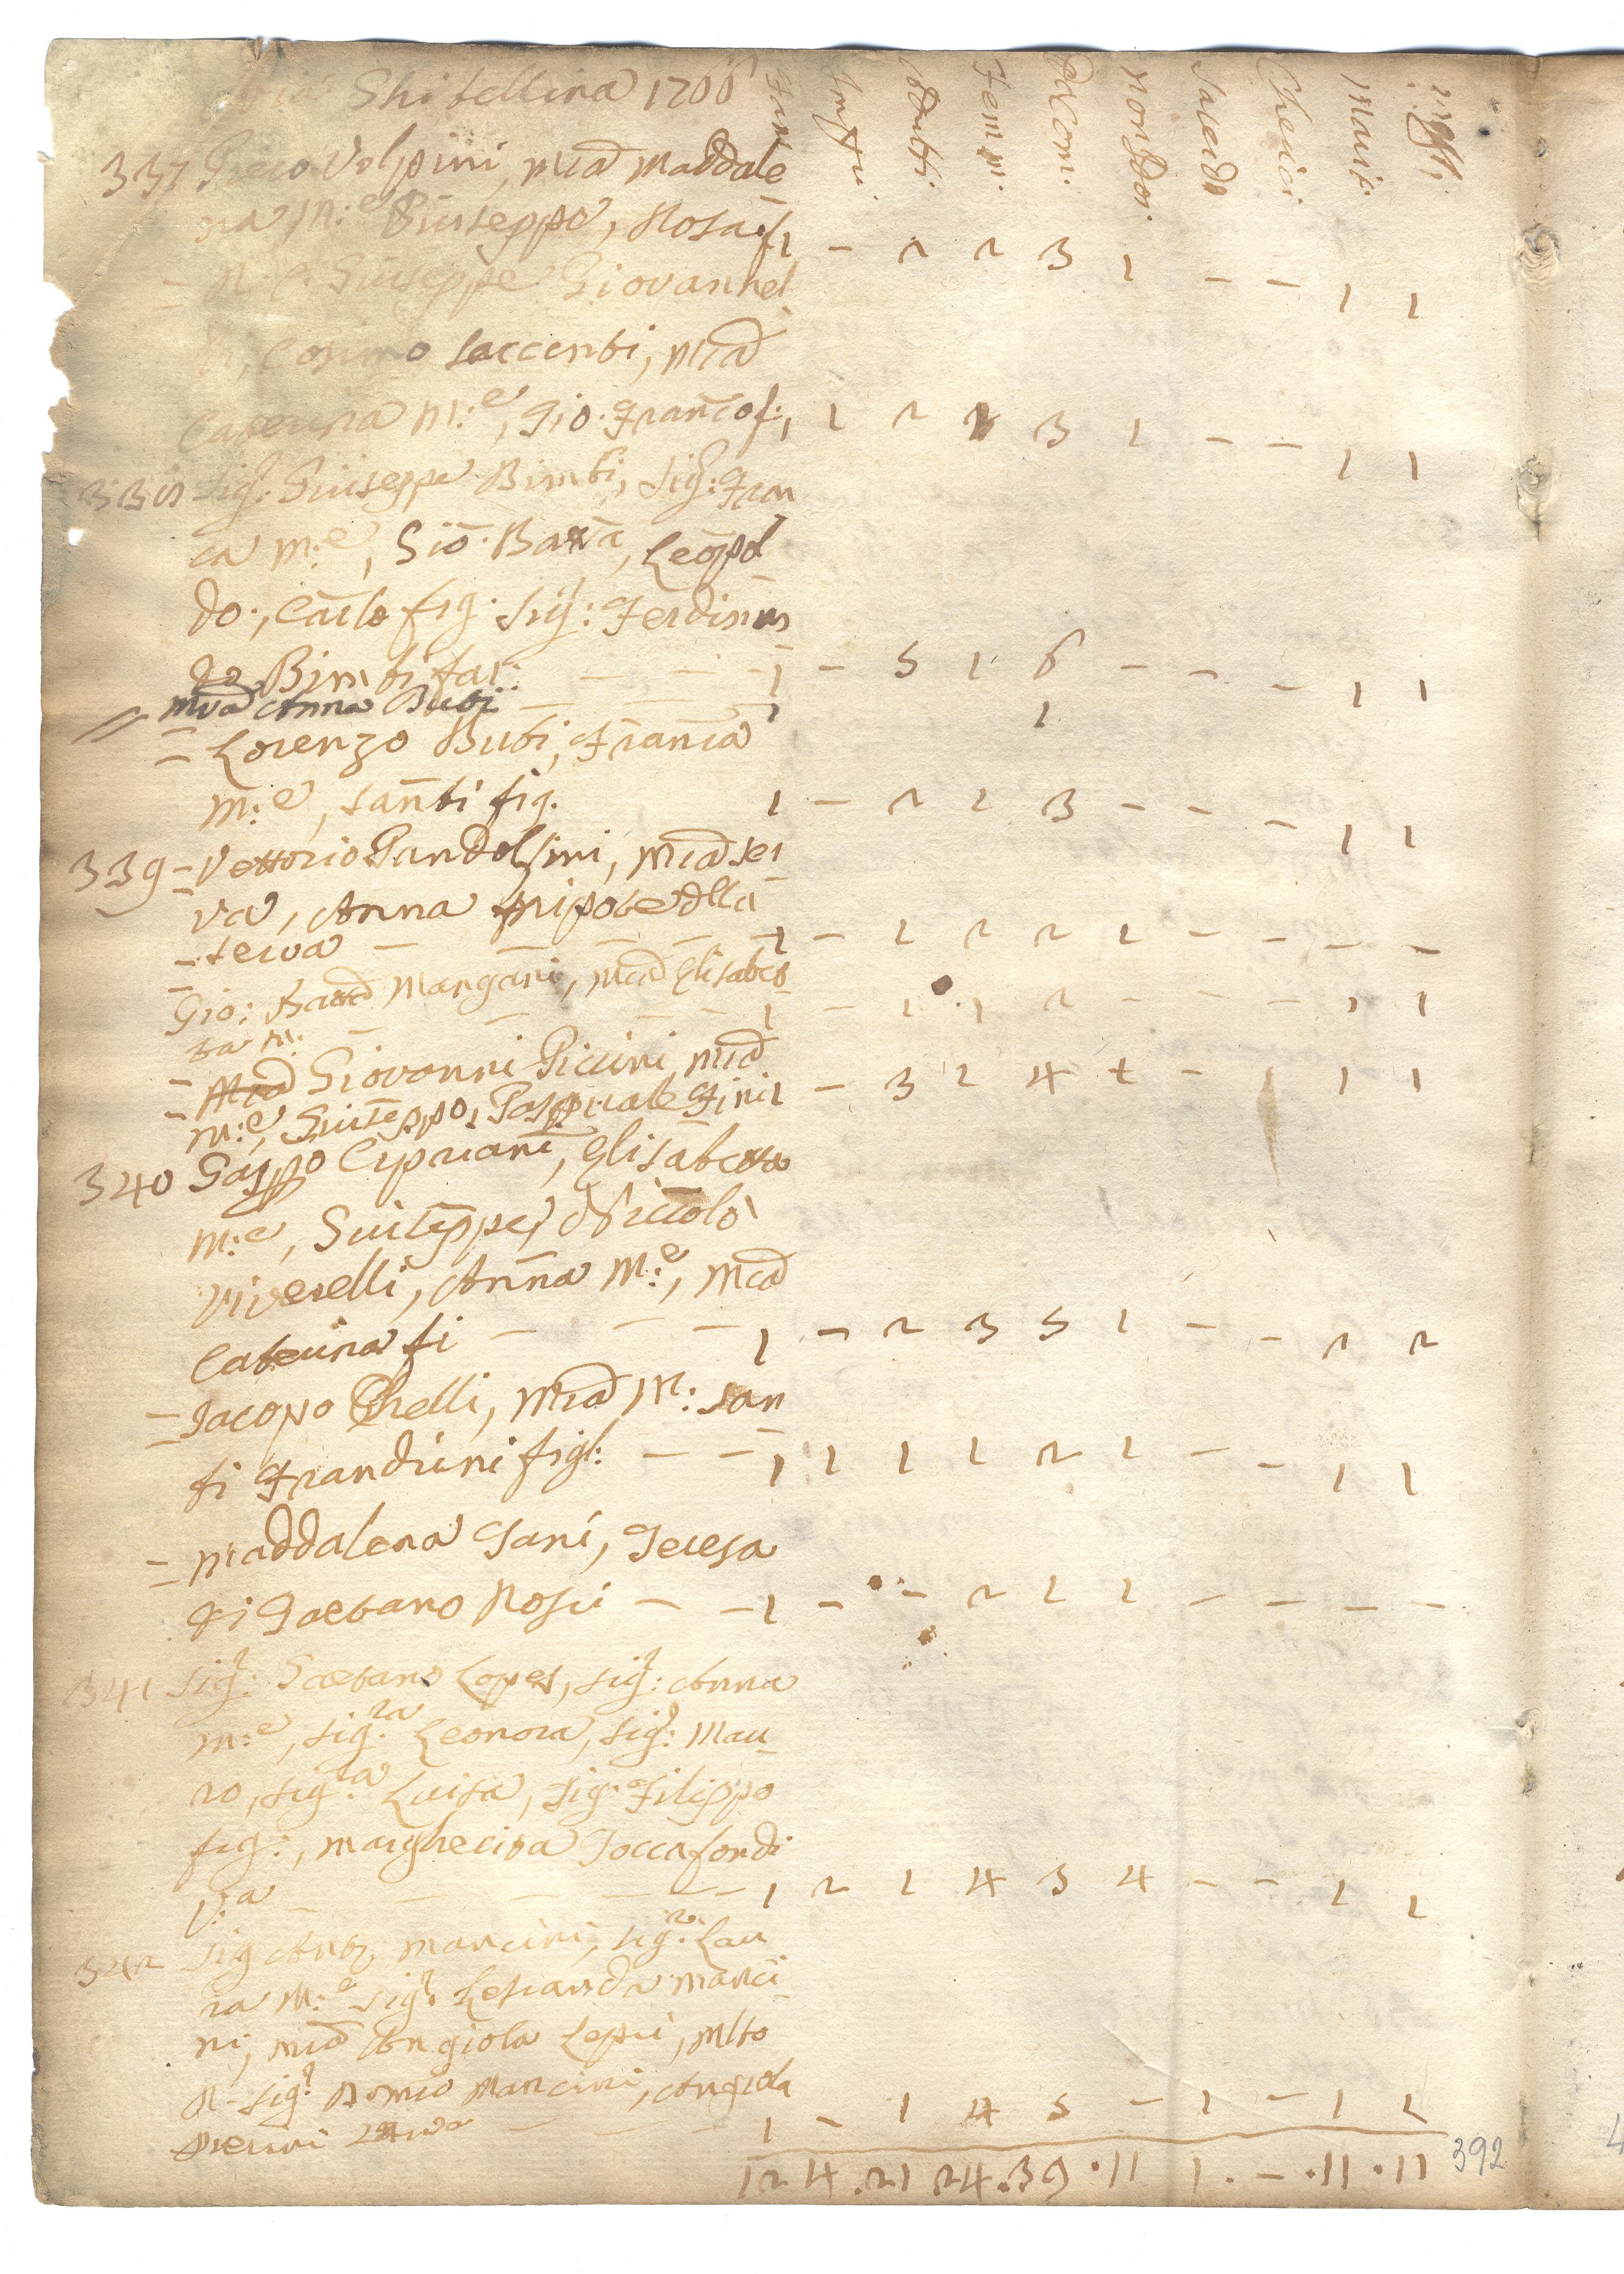 Via Ghibellina 1766 Fam. Imfu. Adulti. Femm. Com. Non Com. Sacerd. Cherici Marit. Mogli
337 Piero Volpini, M:a Maddale
na M:e Giuseppe, Rosa f. 1 – 2 2 3 1 – – 1 1
– Giuseppe Giovannel
li, Cosimo Saccenti, M:a
Caterina M:e, Gio. Franco f:, 1 2 3 1 – – 1 1
338 Sig: Giuseppe Bimbi, Sig: Fran
ca M:e, Gio. Batta, Leopol
do, Carlo fig. Sig: Ferdinan
do Bimbi frat: – – – 1 – 5 1 6 – – – 1 1
// M:a Anna Buti – – 1 1
= Lorenzo Buti, Franca
M:e, Santi fig. 1 – 2 1 3 – – – 1 1
339 = Vettorio Pandolfini, M:a ser
va, Anna nipote della
= serva – – – – – 1 – 1 2 2 1 – – – –
Gio: Batta Mangani, M:a Elisabet
ta M: – – – – 1 – 1 1 2 – – – 1 1
= Giovanni Piccini M:a
M:e, Giuseppe, Pasquale Fini 1 – 3 1 4 1 – 1 1 1
340 Gaspo Cipriani, Elisabetta
M:e, Giuseppe, Niccolò
Viverelli, Anna M:e, M:a
Caterina fi – – – 1 – 2 3 5 1 – – 2 2
= Jacopo Chelli, M:a M: San
ti Frandini figl: – – 1 1 1 1 2 1 – – 1 1
= Maddalena Gani, Teresa
di Gaetano Rosii – – 1 – – 2 1 1 – – – –
341 Sig: Gaetano Lopes, Sig: Anna
M:e, Sig:ra Leonora, Sig: Mau
ro, Sig:ra Luisa, Sig: Filippo
fig:, Margherita Toccafondi
V:a – – – – – 1 2 1 4 3 4 – – 1 1
342 Sig Anto Mancini, Sig:ra Lau
ra M:e Sig: Manci
ni, M:a Angiola Lepri, Mlto
R. Sig: Romo Mancini, Angiola
– – – 1 – 1 4 5 – 1 – 1 1
12 4 . 21 24 . 39 . 11 1 . – . 11 . 11
392